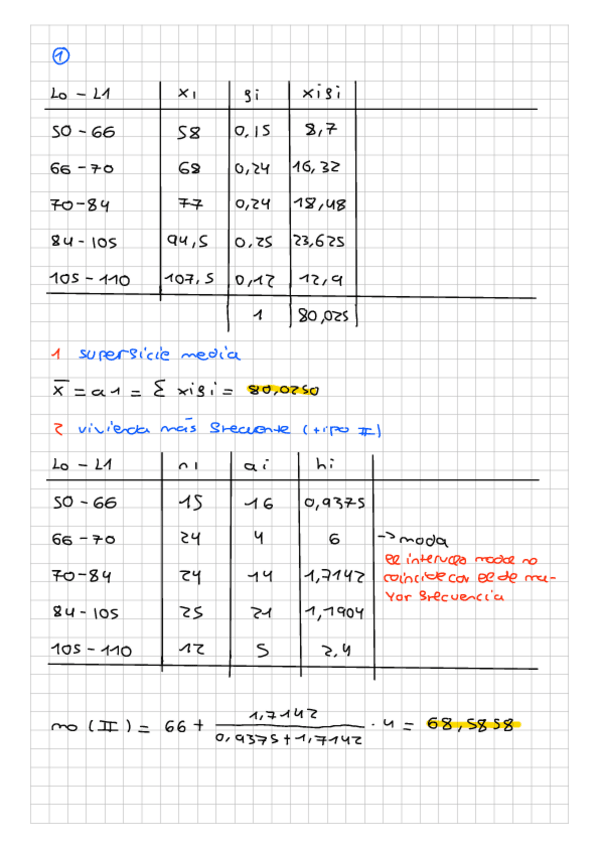 1
L0 - L1 xi fi xifi
50 - 66 58 0,15 8,7
66 - 70 68 0,24 16,32
70 - 84 77 0,24 18,48
84 - 105 94,5 0,25 23,625
105 - 110 107,5 0,12 12,9
1 80,025
1 superficie media
x̄ = a1 = Σ xifi = 80,0250
2 vivienda más frecuente (tipo II)
L0 - L1 ni ai hi
50 - 66 15 16 0,9375
66 - 70 24 4 6 -> moda
el intervalo modal no
70 - 84 24 14 1,7142 coincide con el de ma-
yor frecuencia
84 - 105 25 21 1,1904
105 - 110 12 5 2,4
mo (II) = 66 + 1,7142 / 0,9375 + 1,7142 · 4 = 68,5858